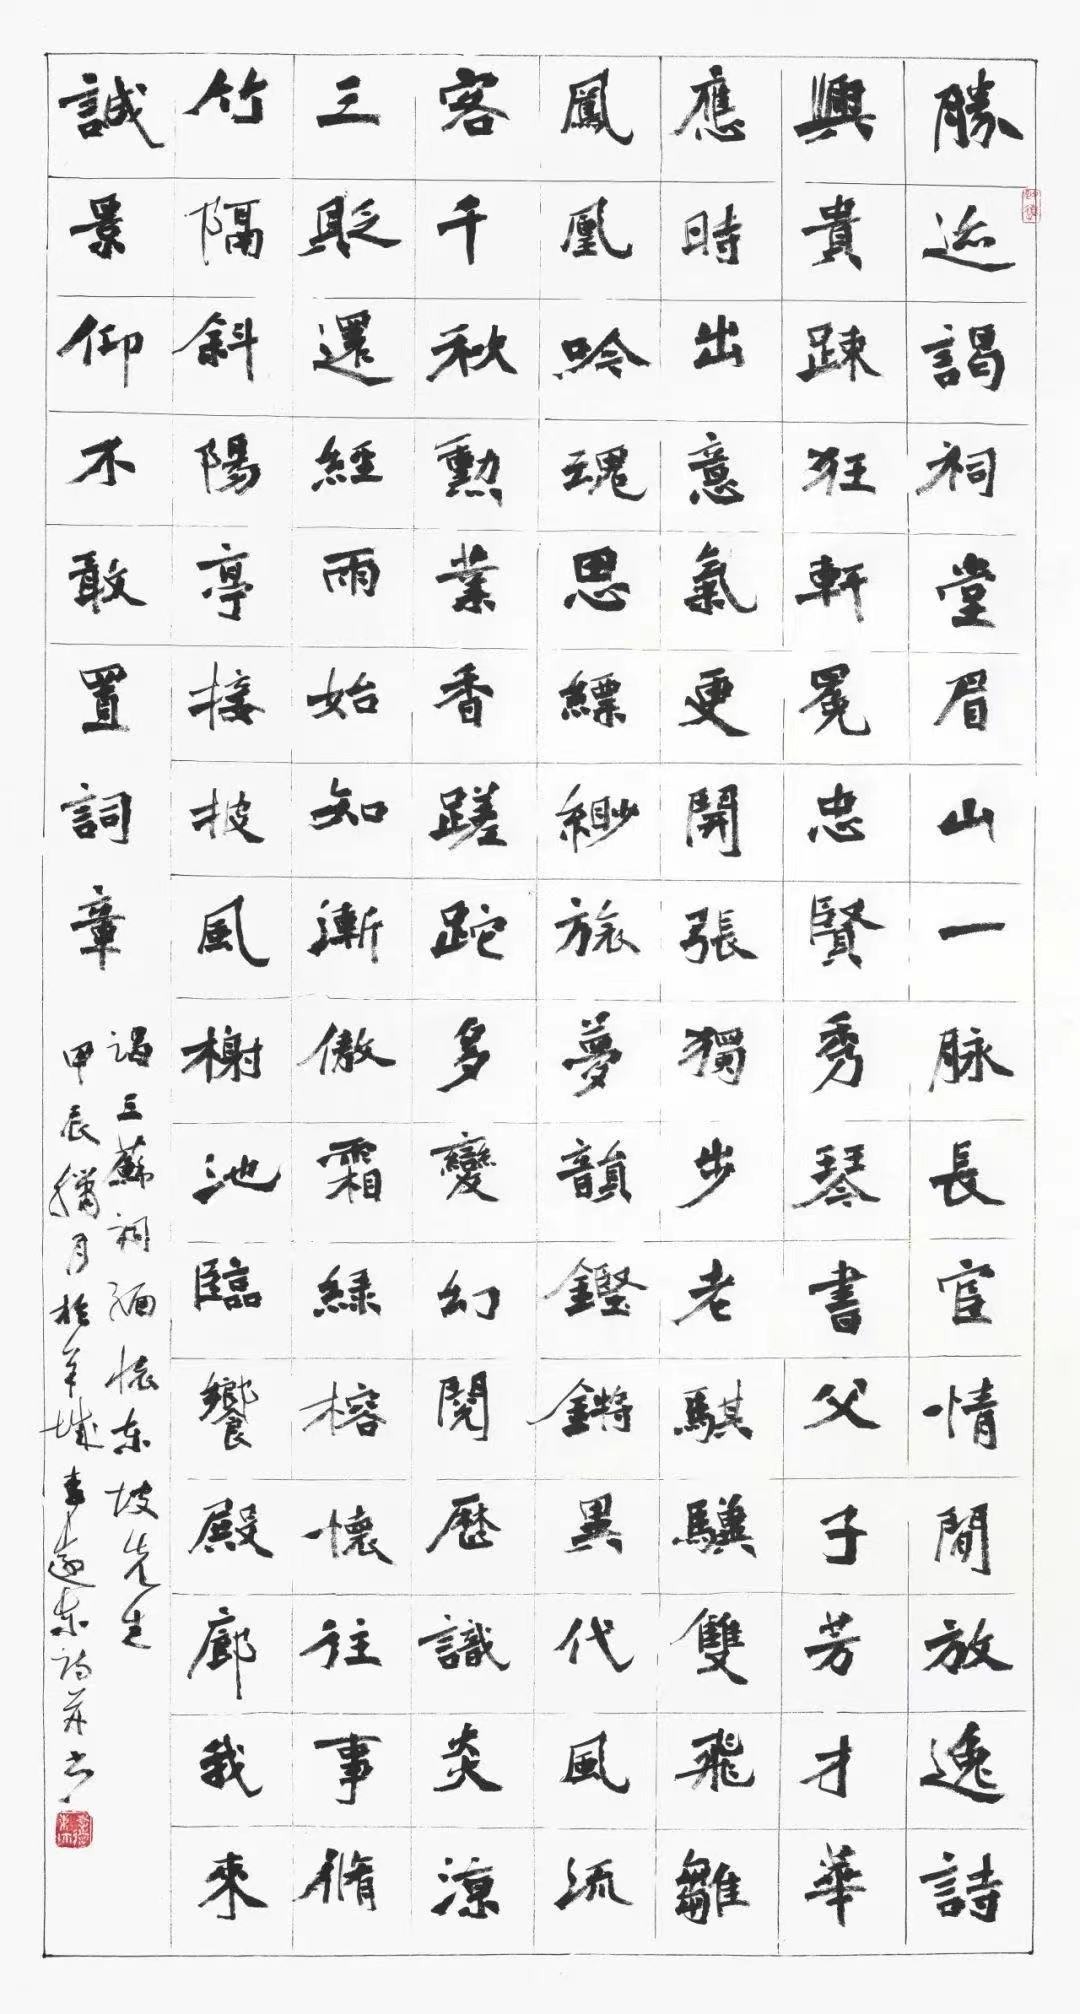 勝迹謁祠堂眉山一脉長宦情閒放逸詩
興貴踈狂軒冕忠賢秀琴書父子芳才華
應時出意氣更開張獨步老騏驥雙飛雛
鳳凰吟魂思縹緲旅夢韻鏗鏘異代風流
客千秋勲業香蹉跎多變幻閲歷識炎涼
三貶還經雨始知漸傲霜緑榕懷往事脩
竹隔斜陽亭接披風榭池臨饗殿廊我來
誠景仰不敢置詞章
謁三蘇祠緬懷东坡先生
甲辰臘月於羊城李遠东诗并书